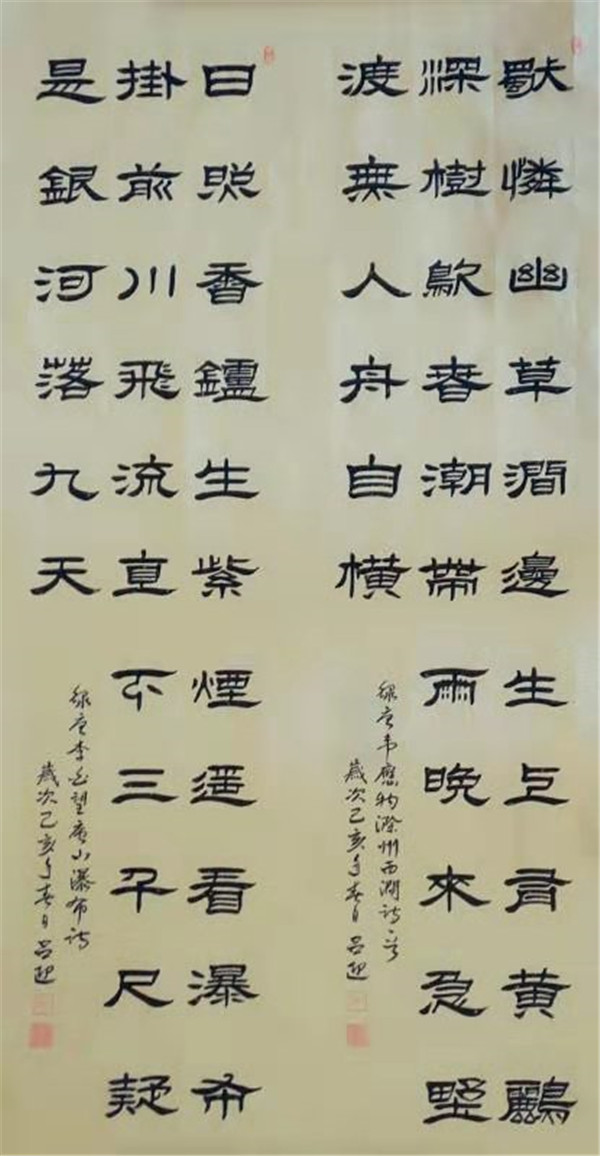 獨憐幽草澗邊生上有黃鸝
深樹鳴春潮帶雨晚來急野
渡無人舟自橫
錄唐韦應物滁州西澗詩一首
歲次己亥年春日 吕迎
日照香鑪生紫煙遥看瀑布
掛前川飛流直下三千尺疑
是銀河落九天
錄唐李白望廬山瀑布詩
歲次己亥年春日 吕迎